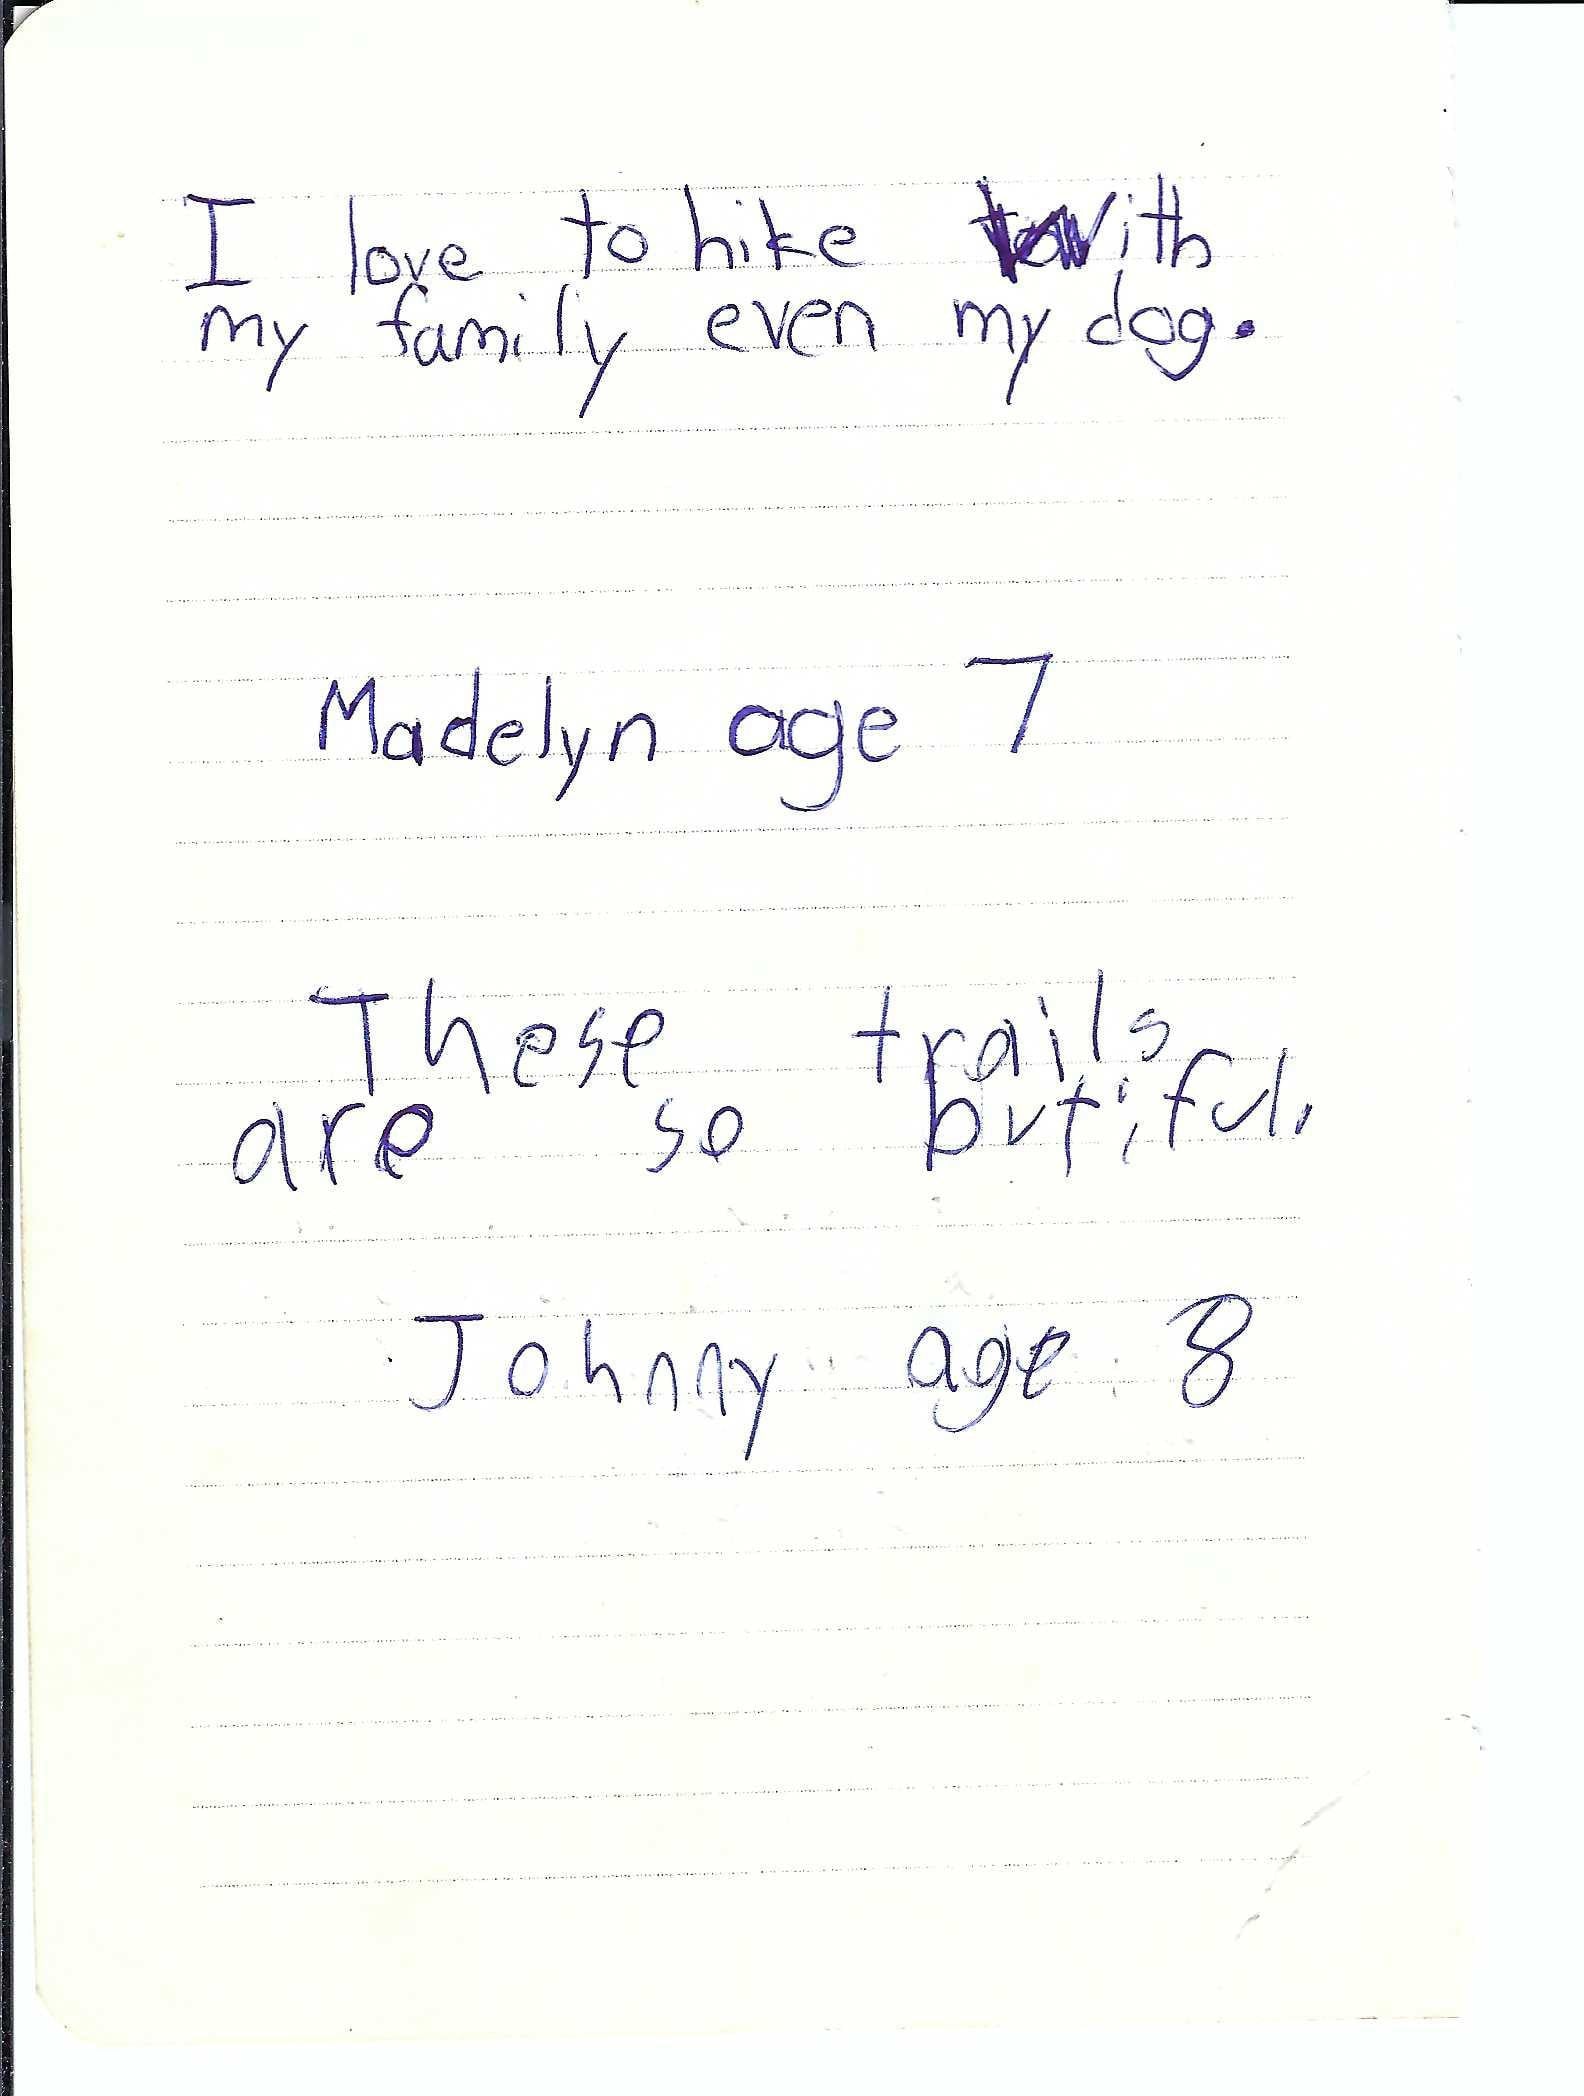 I love to hike with
my family even my dog.
Madelyn age 7
These trails
are so butiful.
Johnny age 8